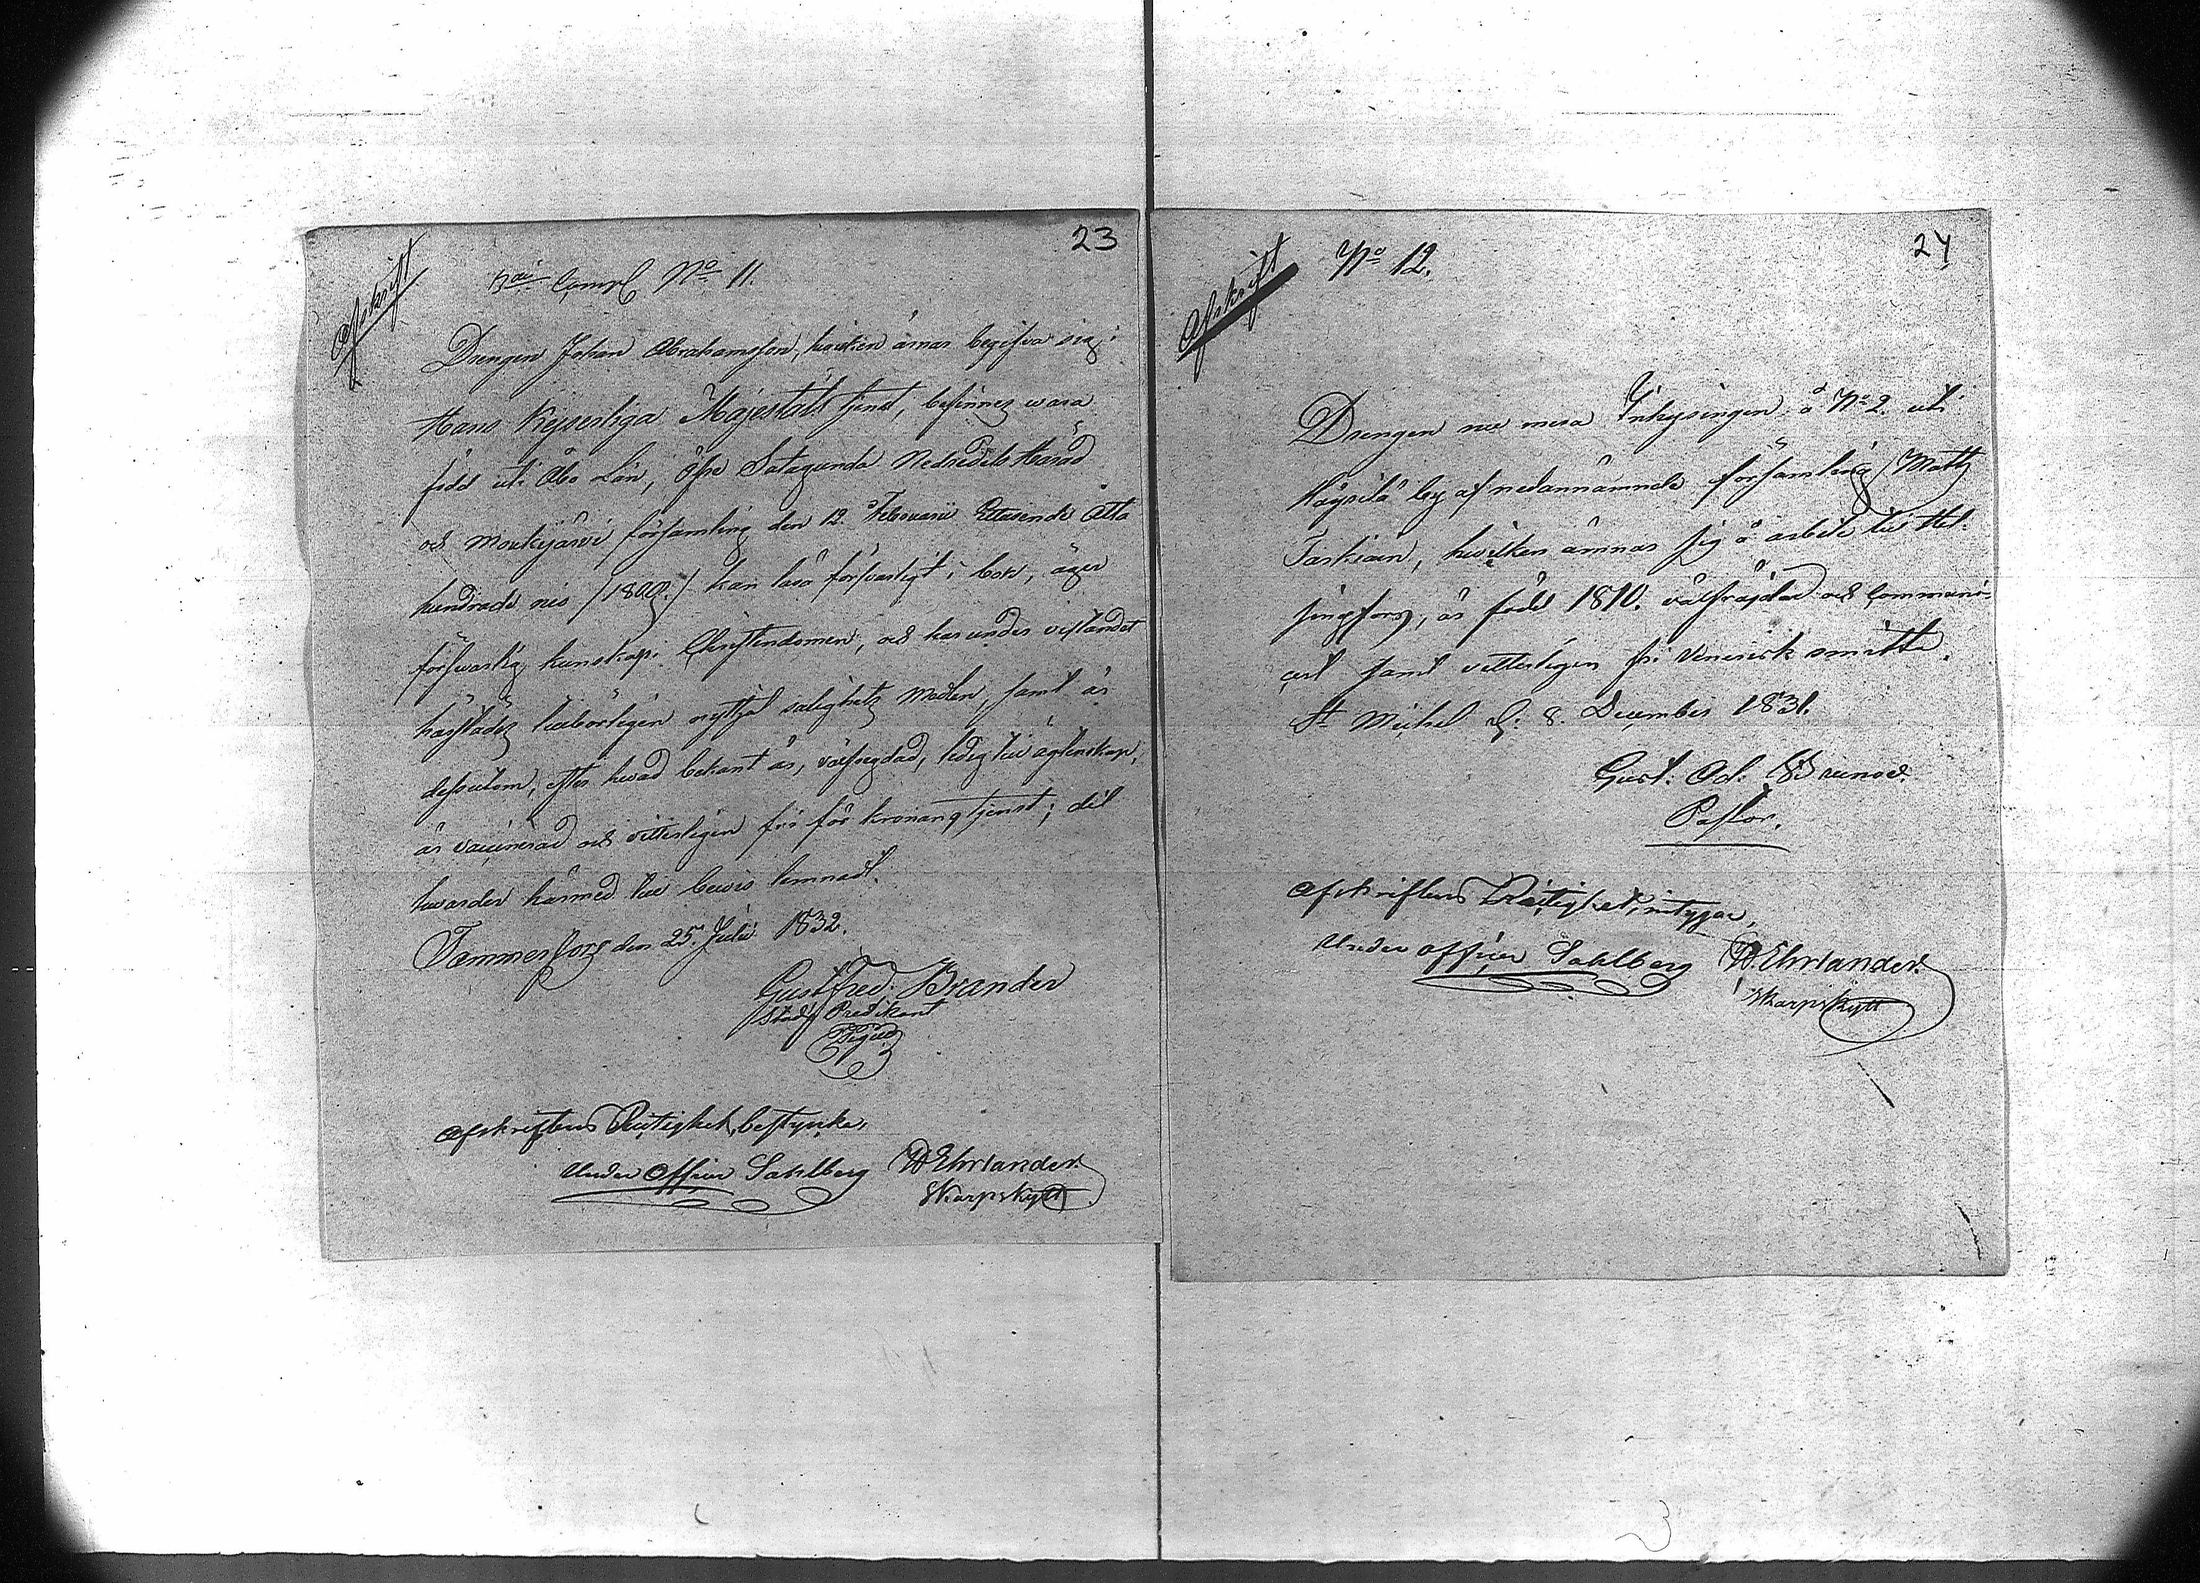 23
Afskrift
3die Comp. No 11.
Drengen Johan Abrahamsson, hwilken ämnar begifva sig i
Hans Kejserliga Majestäts tjenst, befinnes wara
född uti Åbo Län, Öfre Satagunda Nedredels Härad
och Mouhijärvi församling den 12. Februarii Ettusende Åtta
hundrade nio /1809./ kan läsa försvarligt i bok, äger
försvarlig kunskap i Christendomen, och har under vistandet
härstädes tillbörligen nyttjat salighets medlen, samt är
dessutom, efter hwad bekant är, välfregdad, ledig till äktenskap,
är vaccinerad och vitterligen fri för kronans tjenst; det
hwarder härmed till bewis lemnadt.
Tammerfors den 25. Julii 1832.
Gust Fred. Brander
Stads Predikant
Afskriftens Rigtighet, bestyrka,
Under Officer Sahlberg W Ehrlander.
Skarpskytt
24
Afskrift
No 12.
Drengen nu mera Inhysingen å No 2. uti
by af nedannämnde församling Matts
Taskinen, hwilken ämnar sig å arbete till Hel-
singfors, är född 1810. välfräjdad och Communi-
cert samt vitterligen fri Venerisk smitta.
St Michel d: 8. December 1831.
Gust: Ad:
Pastor.
Afskriftens Rigtighet, intygar,
Under officer Sahlberg W Ehrlander.
Skarpskytt